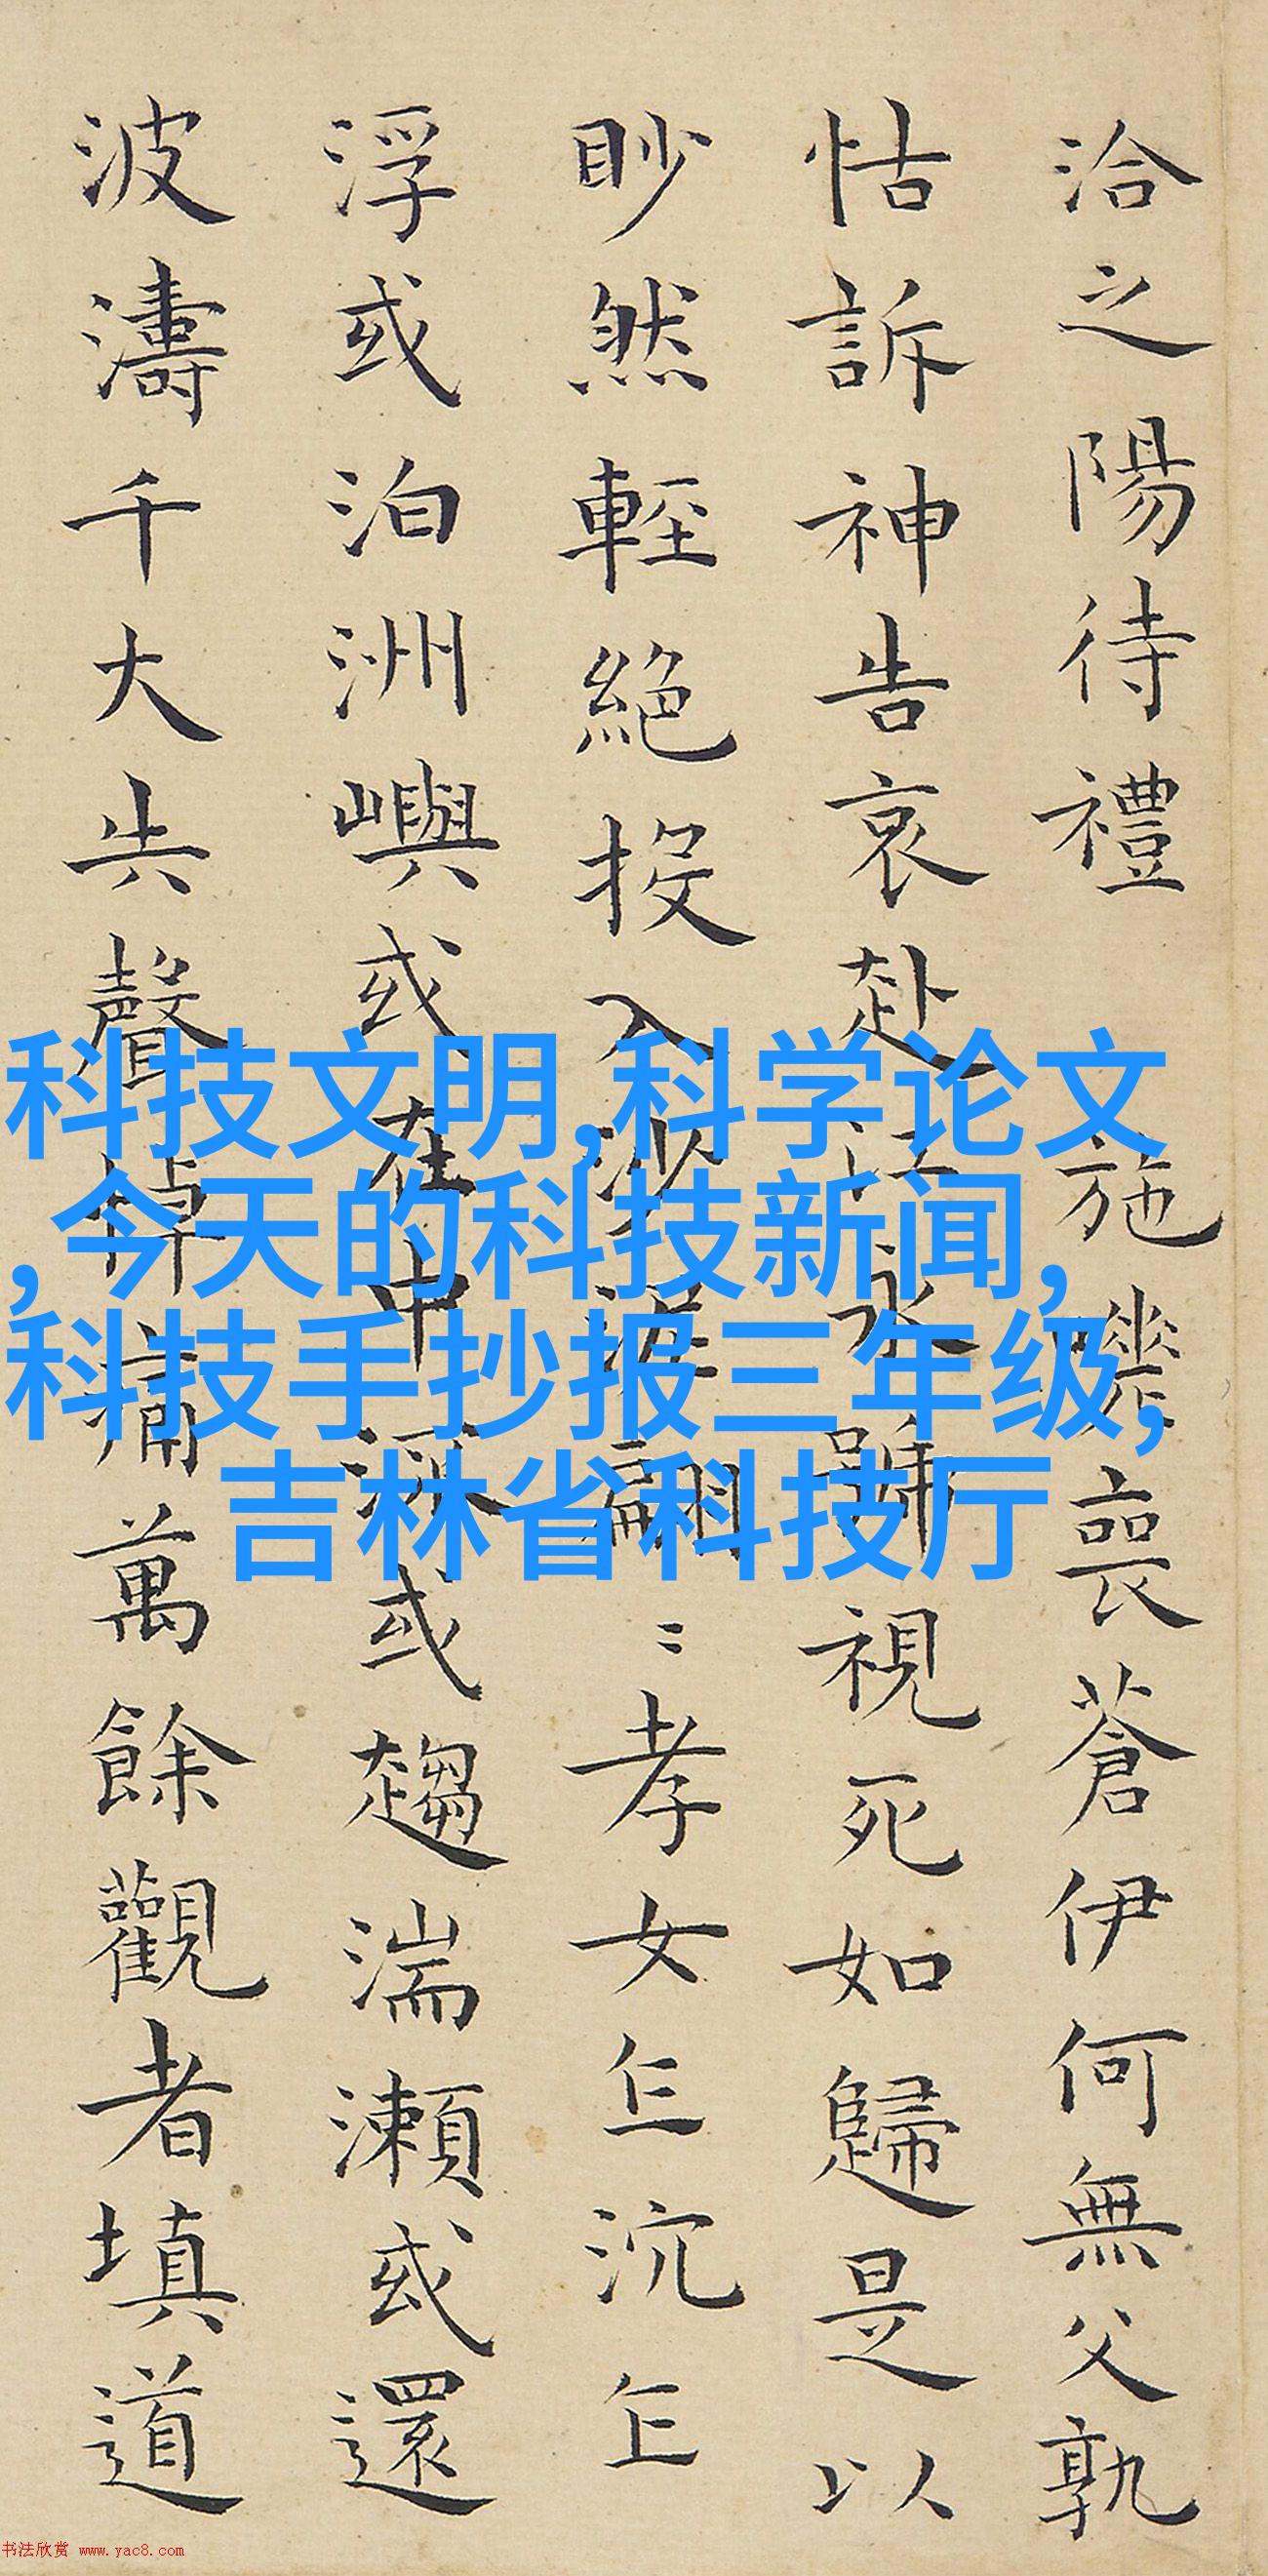 洽之陽待禮施喪蒼伊何無父孰
怙訴神告哀赴江永號視死如歸是以
眇然輕絕投入沙泥翩〻孝女乍沉乍
浮或泊洲嶼或在中流或趨湍瀨或還
波濤千大失聲悼痛萬餘觀者填道
科技文明,科学论文
,今天的科技新闻,
科技手抄报三年级,
吉林省科技厅
书法欣赏 www.yac8.com